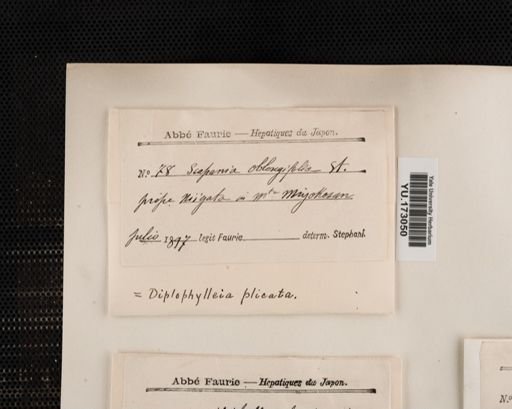 Abbé Faurie — Hepatiques du Japon.
No 78 Scapania oblongifolia St.
prope Niigata in mte Miogokosan.
julio 1897 legit Faurie determ. Stephani.
= Diplophylleia plicata.
Yale University Herbarium
YU.173050
Abbé Faurie — Hepatiques du Japon.
No